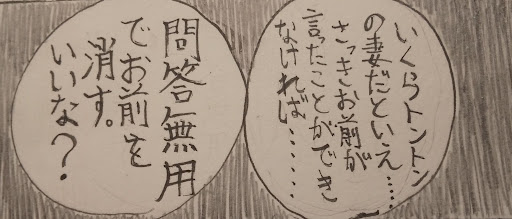 いくらトントン
の妻だといえ……
さっきお前が
言ったことができ
なければ……
問答無用
でお前を
消す。
いいな？